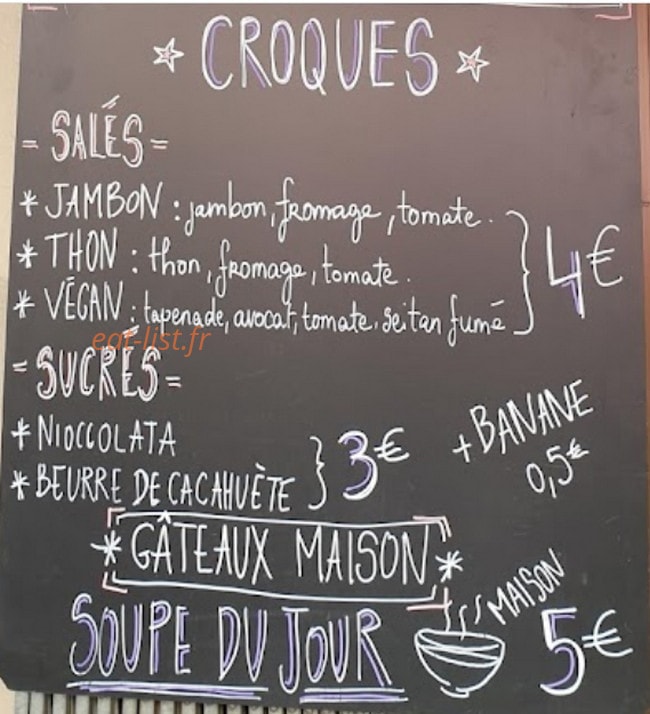 CROQUES
= SALÉS =
* JAMBON : jambon, fromage, tomate.
* THON : thon, fromage, tomate.
4€
* VÉGAN : tapenade, avocat, tomate, seitan fumé
eat-list.fr
= SUCRÉS =
* NIOCCOLATA
* BEURRE DE CACAHUÈTE
3€
+ BANANE
0,5€
* GÂTEAUX MAISON *
SOUPE DU JOUR
MAISON
5€